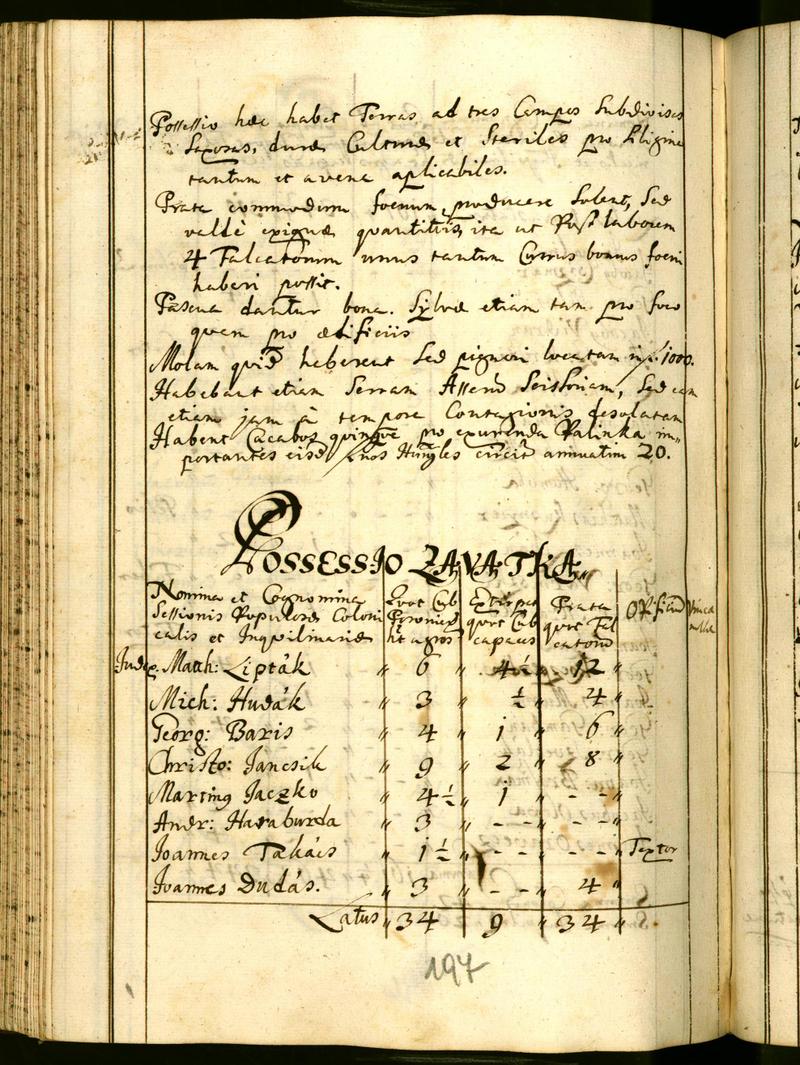 Possessio haec habet Terras ad tres Campos Subdivisas
Saxosas, durae Culturae et Steriles pro Siligine
tantum et avena aplicabiles.
Prata commodum foenum producere solent, Sed
valdè exiguae quantitatis ita ut Post laborem
4 Falcatorum unus tantum Currus bonus foeni
haberi possit.
Pascua dantur bona. Sylvae etiam tam pro foco
quam pro aedificiis
Molam quid haberent Sed pignori locatam in 1000.
Habebant etiam Serram Asserum Scissoriam, Sed eam
etiam jam à tempore Contagionis desolatam
Habent Cacabos quinque pro exurenda Palinka im„
portantes eisd circit annuatim 20.
Possessio ZAVATKA„
Nomina et Cognomina Quot Cub Extirpat Prata Opificiū Vinea
Sessionis Populosae Coloni Posonien quot Cub quot Fal nulla
calis et Inquilinariae ht agros capaces catorū
Judex Math: Lipták „ 6 „ 4½ „ 12 „
Mich: Hudák „ 3 „ ½ „ 4 „
Georg: Baris „ 4 „ 1 „ 6 „
Christo: Jancsik „ 9 „ 2 „ 8 „
Marting Jaczko „ 4½ „ 1 „ - - „
Andr: Haraburda „ 3 „ - - „ - - „
Joannes Takács „ 1½ „ - - „ - - „ Textor
Joannes Dudás. „ 3 „ - - „ 4 „
Latus „ 34 „ 9 „ 34 „
197